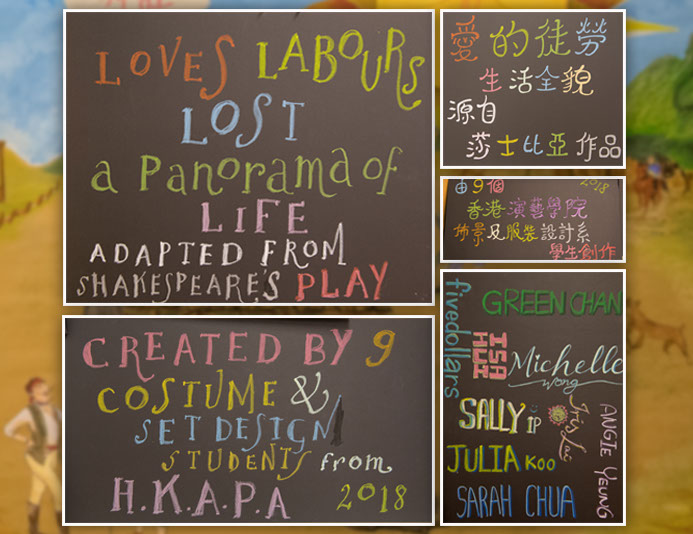 LOVES LABOURS
LOST
a Panorama of
LIFE
ADAPTED FROM
SHAKESPEARE'S PLAY
CREATED BY 9
COSTUME &
SET DESIGN
STUDENTS from
H.K.A.P.A 2018
愛的徒勞
生活全貌
源自
莎士比亞作品
由9個 2018
香港演藝學院
佈景及服裝設計系
學生創作
fivedollars
GREEN CHAN
ISA HUI
Michelle
Wong
SALLY IP
Iris Lai
ANGIE YEUNG
JULIA KOO
SARAH CHUA